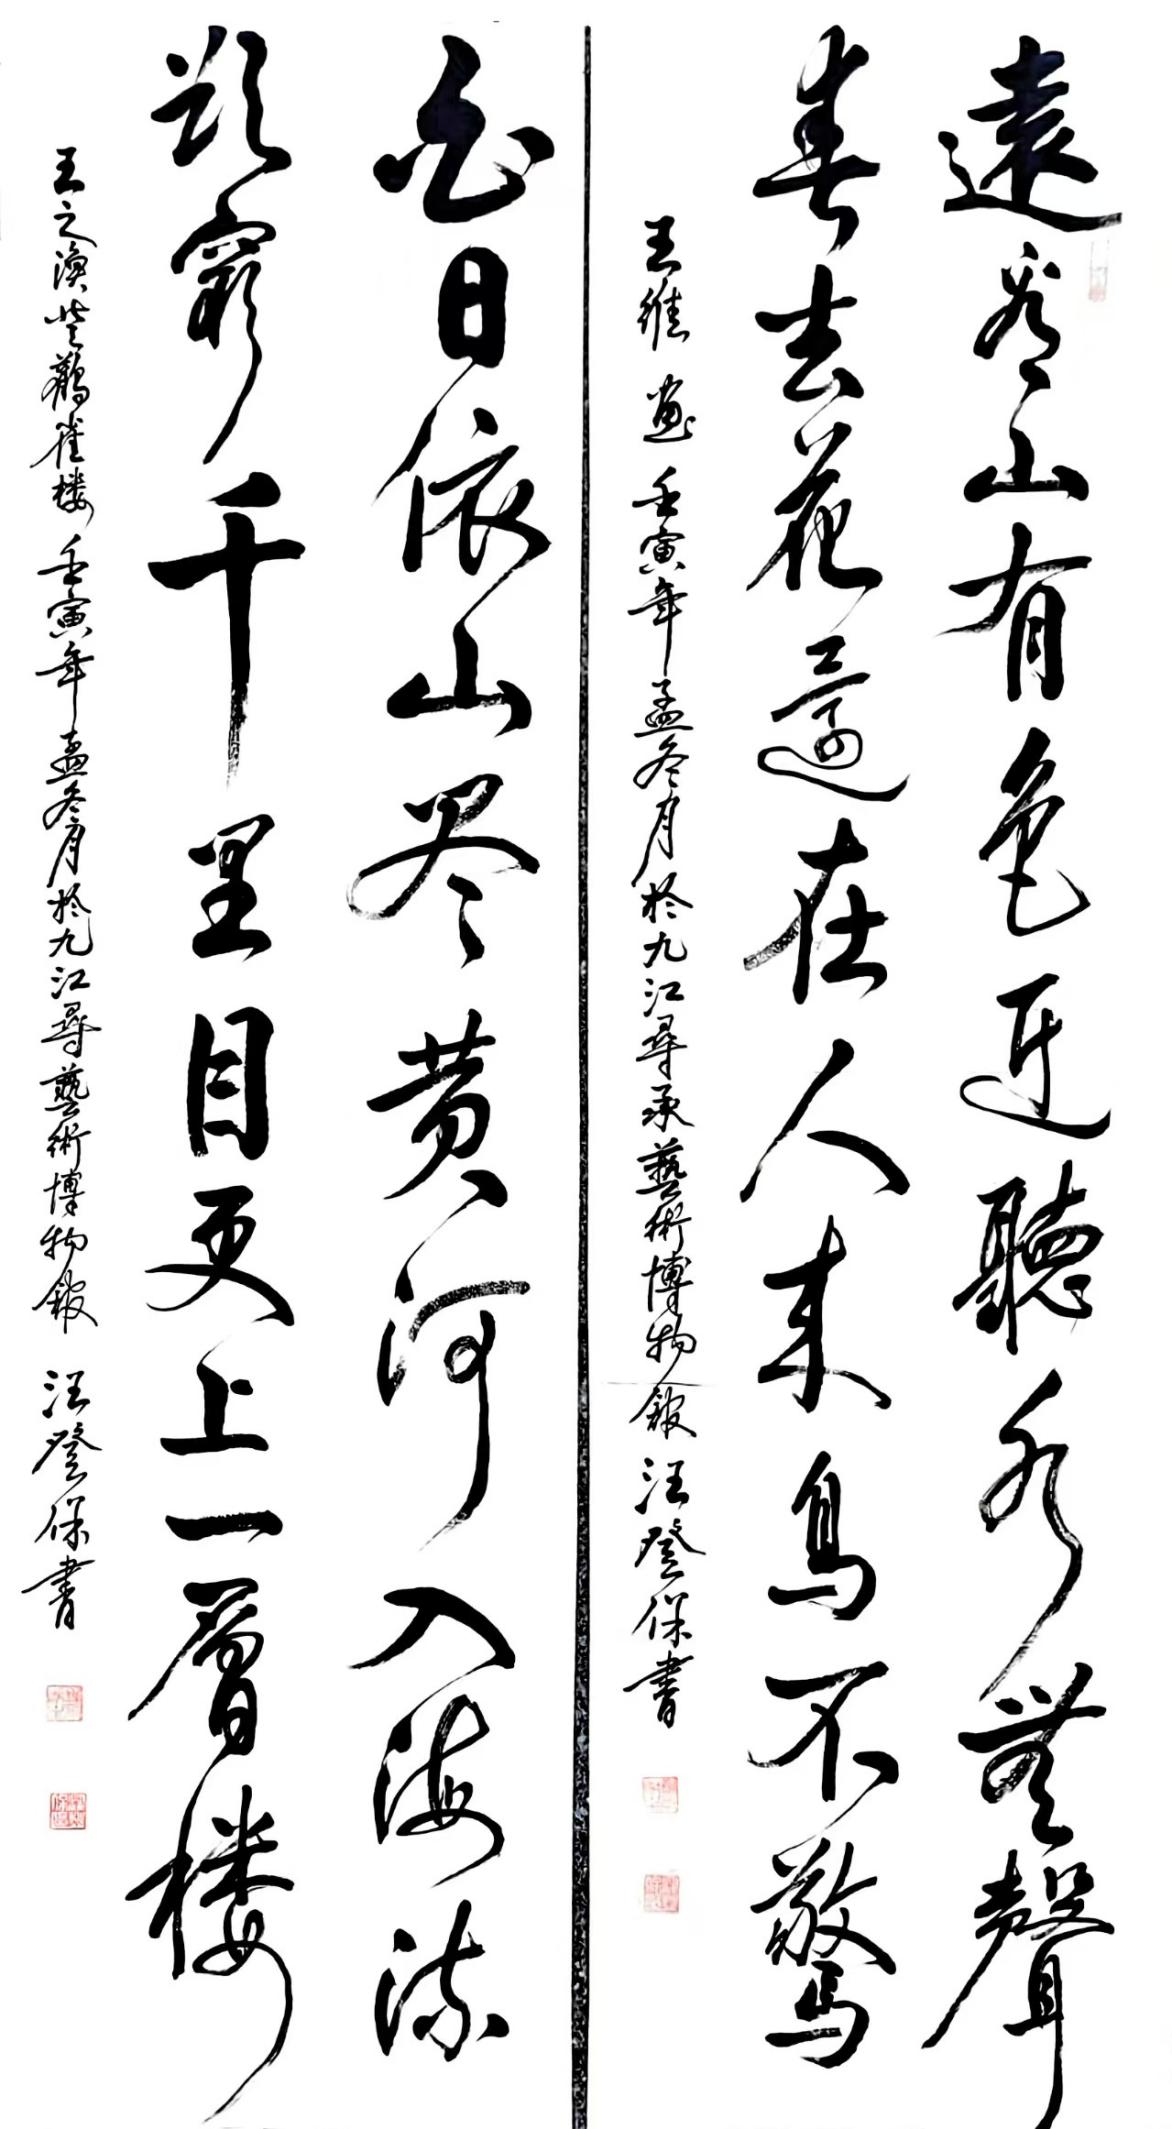 遠看山有色近聽水無聲
春去花還在人來鳥不驚
王維 畫 壬寅年孟冬月於九江尋承藝術博物館 汪登保書
白日依山尽黄河入海流
欲窮千里目更上一層楼
王之渙登鸛雀楼 壬寅年孟冬月於九江尋藝術博物館 汪登保書